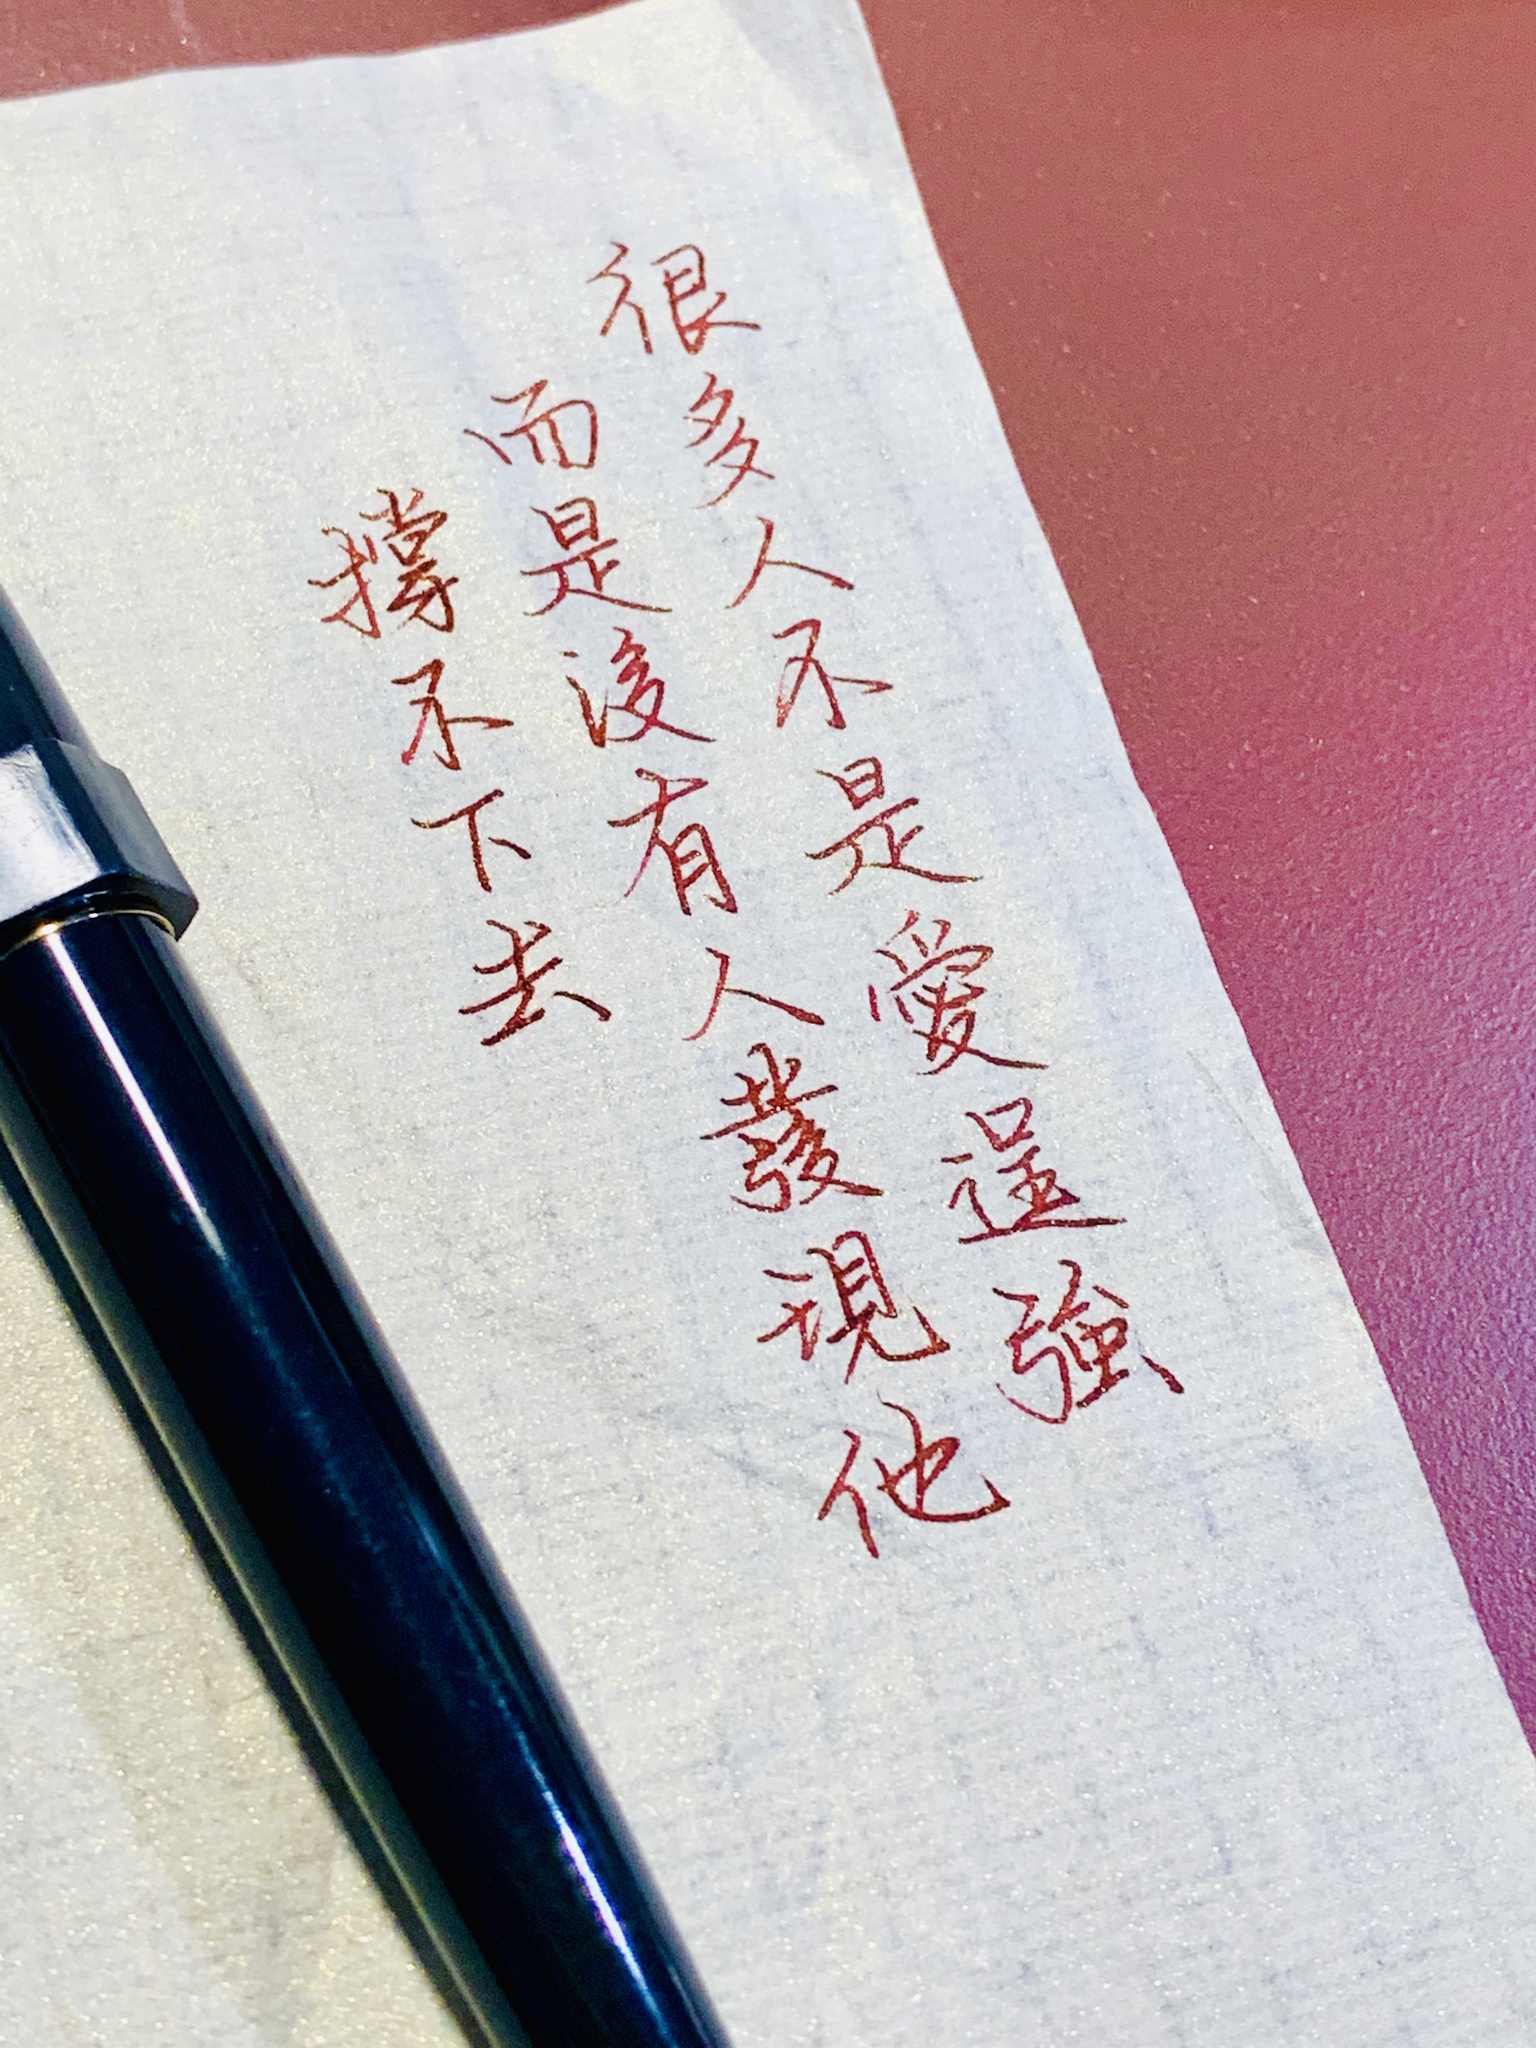 很多人不是愛逞強
而是沒有人發現他
撐不下去